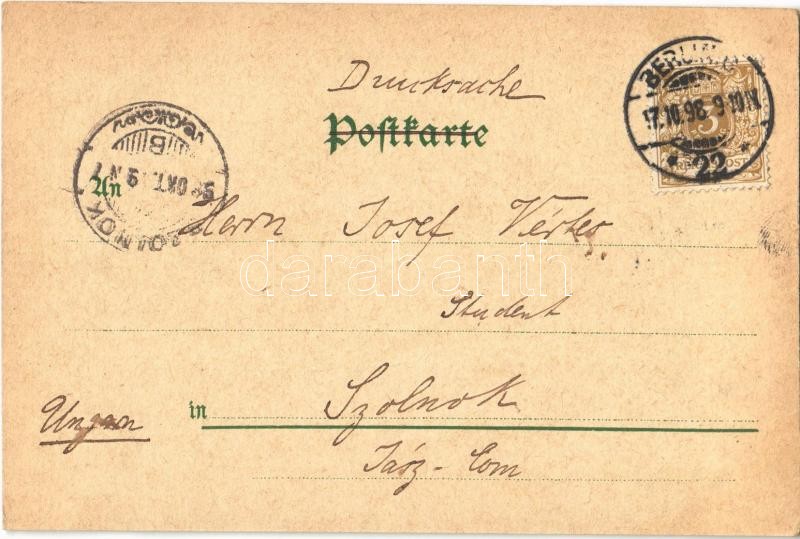 Drucksache
Postkarte
BERLIN
17.10.98. 9-10 N.
* 22 *
3
REICHSPOST
SZOLNOK
B
OKT. 19
An Herrn Josef Vértes
Student
in Szolnok
Ungarn
Jász-Com
darabanth